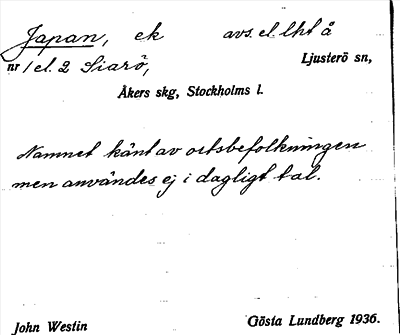 Japan, ek avs. el. lht å
nr 1 el. 2 Siarö, Ljusterö sn,
Åkers skg, Stockholms l.
Namnet känt av ortsbefolkningen
men användes ej i dagligt tal.
John Westin Gösta Lundberg 1936.